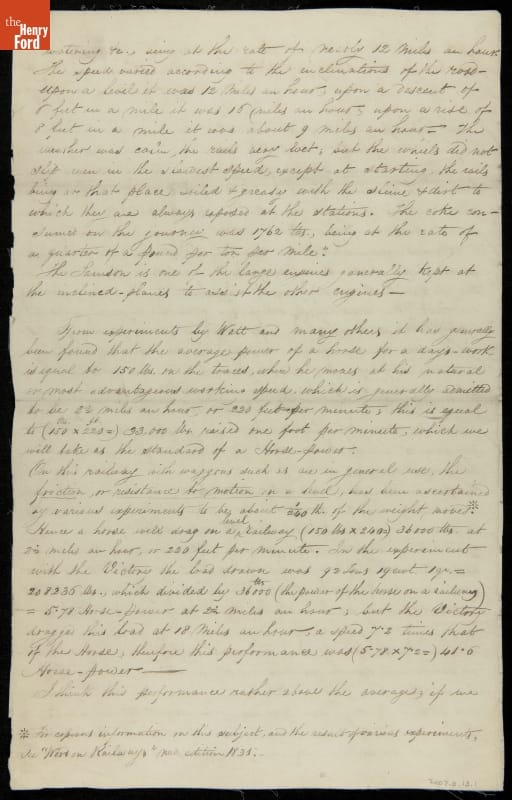 the
Henry
Ford
watering &c., being at the rate of nearly 12 miles an hour.
The speed varied according to the inclinations of the road—
upon a level it was 12 miles an hour; upon a descent of
8 feet in a mile it was 16 miles an hour, upon a rise of
8 feet in a mile it was about 9 miles an hour— The
weather was calm the rails very wet; but the wheels did not
slip even in the slowest speed, except at starting, the rails
being at that place soiled & greasy with the slime & dirt to
which they are always exposed at the stations. The coke con-
sumed on the journey was 1762 lbs., being at the rate of
a quarter of a pound per ton per mile."
The Samson is one of the large engines generally kept at
the inclined-planes to assist the other engines—
From experiments by Watt and many others it has generally
been found that the average power of a horse for a days-work
is equal to 150 lbs. on the traces, when he moves at his natural
or most advantageous working speed, which is generally admitted
to be 2½ miles an hour, or 220 feet per minute; this is equal
to (150 lbs x 220 ft =) 33.000 lbs raised one foot per minute, which we
will take as the standard of a Horse-power.
On this railway with waggons such as are in general use, the
friction, or resistance to motion on a level, has been ascertained
by various experiments to be about 1/240 th. of the weight moved ※
Hence a horse will drag on a level Railway (150 lbs x 240 =) 36000 lbs. at
2½ miles an hour, or 220 feet per minute. In the experiment
with the Victory the load drawn was 92 tons 19 cwt 1 qr. =
208236 lbs., which divided by 36000 lbs (the power of the horse on a railway)
= 5.78 Horse-power at 2½ miles an hour; but the Victory
dragged this load at 18 miles an hour, a speed 7.2 times that
of the Horse, therefore this performance was (5.78 x 7.2 =) 41.6
Horse-power—
I think this performance rather above the average; if we
※ For copious information on this subject, and the results of various experiments,
see "Wood on Railways" new edition 1831.—